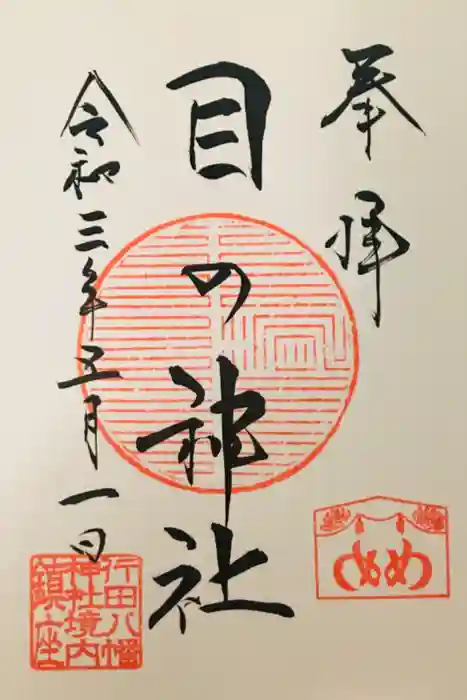 奉拝
目の神社
令和三年五月一日
行田八幡
神社境内
鎮座
めめ